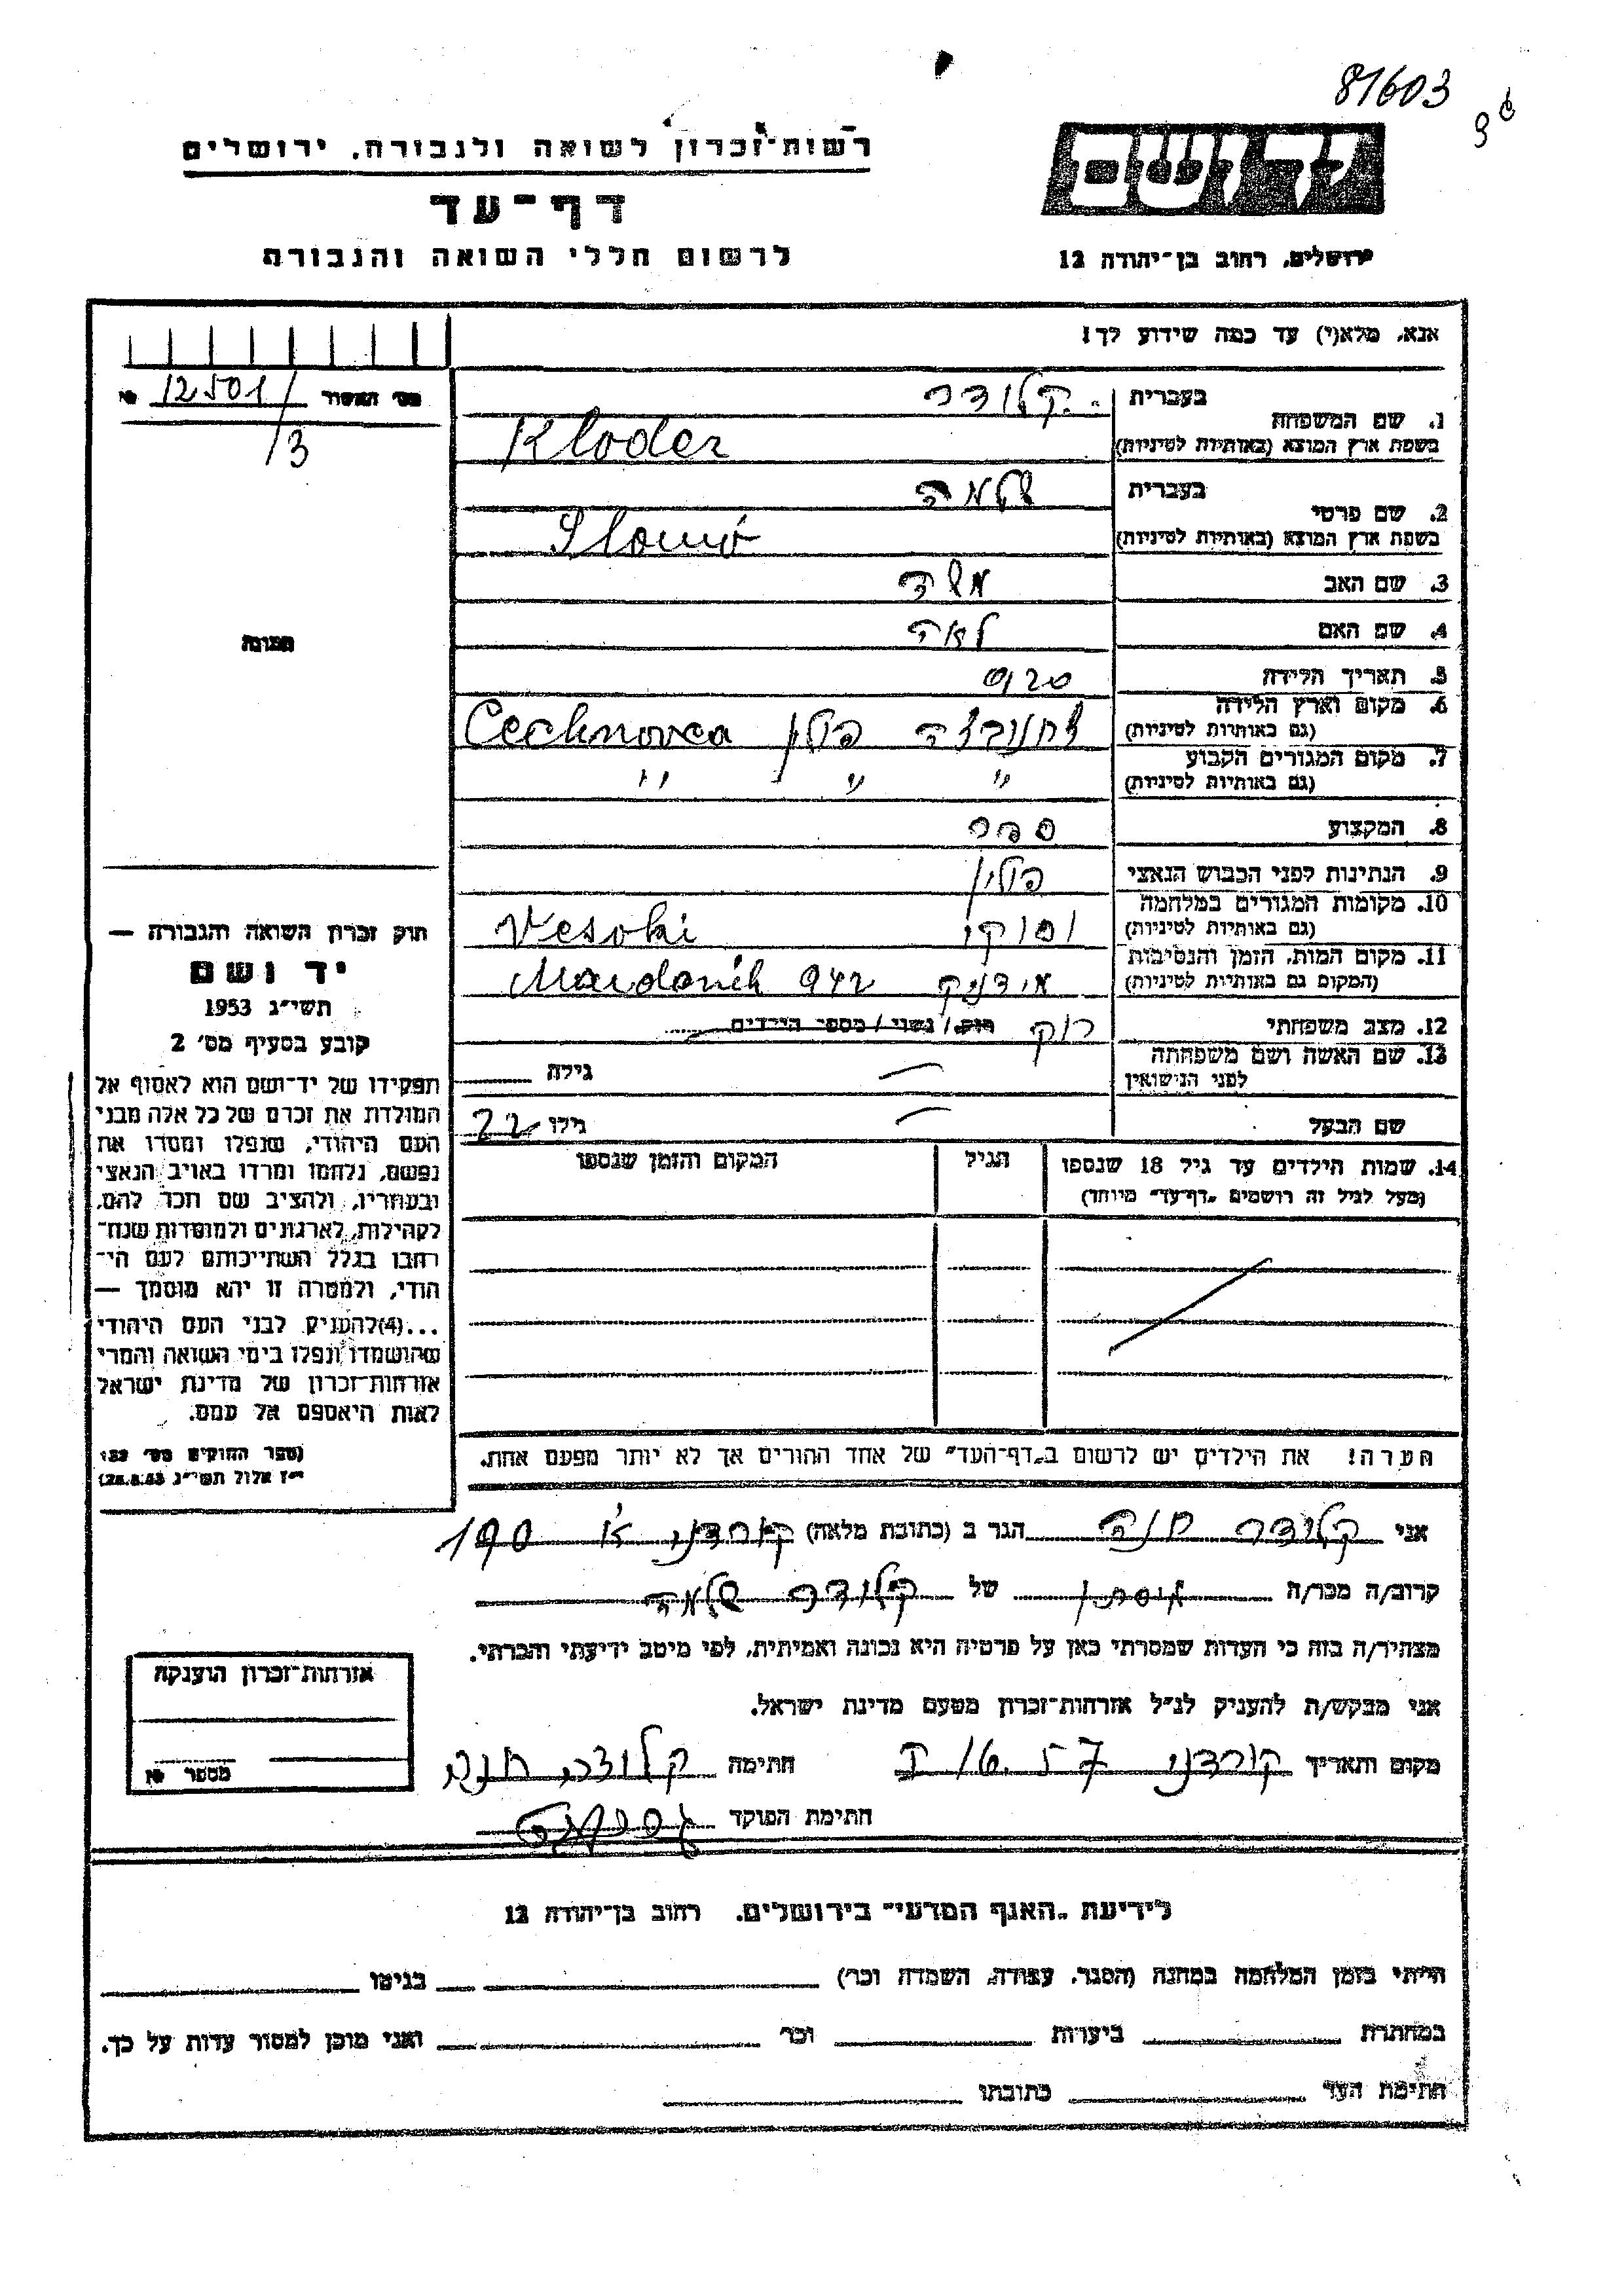 81603
רשות־זכרון לשואה ולגבורה, ירושלים
יד ושם
דף־עד
לרשום חללי השואה והגבורה
ירושלים, רחוב בן־יהודה 12
אנא, מלא(י) עד כמה שידוע לך!
מס׳ האסור № 12501/
/3
1. שם המשפחה
בעברית קלודר
בשפת ארץ המוצא (באותיות לטיניות) Kloder
2. שם פרטי
בעברית שלמה
בשפת ארץ המוצא (באותיות לטיניות)
3. שם האב משה
4. שם האם לאה
5. תאריך הלידה 920
6. מקום וארץ הלידה
(גם באותיות לטיניות) צחנובצה פולין Cechnovca
7. מקום המגורים הקבוע
(גם באותיות לטיניות) " " "
8. המקצוע ספר
9. הנתינות לפני הכבוש הנאצי פולין
10. מקומות המגורים במלחמה
(גם באותיות לטיניות) וסוקי Vesoki
11. מקום המות, הזמן והנסיבות
(המקום גם באותיות לטיניות) מידניק 942 Maidanik
12. מצב משפחתי רוק רוק/ נשוי/ מספר הילדים
13. שם האשה ושם משפחתה
לפני הנישואין — גילה
שם הבעל — גילו 22
14. שמות הילדים עד גיל 18 שנספו הגיל המקום והזמן שנספו
(מעל לגיל זה רושמים „דף־עד״ מיוחד)
הערה! את הילדים יש לרשום ב„דף־העד״ של אחד ההורים אך לא יותר מפעם אחת.
תמונה
חוק זכרון השואה והגבורה —
יד ושם
תשי״ג 1953
קובע בסעיף מס׳ 2
תפקידו של יד־ושם הוא לאסוף אל
המולדת את זכרם של כל אלה מבני
העם היהודי, שנפלו ומסרו את
נפשם, נלחמו ומרדו באויב הנאצי
ובעוזריו, ולהציב שם וזכר להם,
לקהילות, לארגונים ולמוסדות שנח־
רבו בגלל השתייכותם לעם הי־
הודי, ולמטרה זו יהא מוסמך —
...(4)להעניק לבני העם היהודי
שהושמדו ונפלו בימי השואה והמרי
אזרחות־זכרון של מדינת ישראל
לאות היאספם אל עמם.
(ספר החוקים מס׳ 132
י״ז אלול תשי״ג 28.8.53)
אני קלודר חנה הגר ב (כתובת מלאה) קורדני א׳ 190
קרוב/ה מכר/ה של קלודר שלמה
מצהיר/ה בזה כי העדות שמסרתי כאן על פרטיה היא נכונה ואמיתית, לפי מיטב ידיעתי והכרתי.
אני מבקש/ת להעניק לנ״ל אזרחות־זכרון מטעם מדינת ישראל.
מקום ותאריך קורדני חתימה קלודר חנה
חתימת הפוקד
אזרחות־זכרון הוענקה
מספר №
לידיעת „האגף המדעי״ בירושלים, רחוב בן־יהודה 12
הייתי בזמן המלחמה במחנה (הסגר, עבודה, השמדה וכו׳) בגיטו
במחתרת ביערות וכו׳ ואני מוכן למסור עדות על כך.
חתימת העד כתובתו